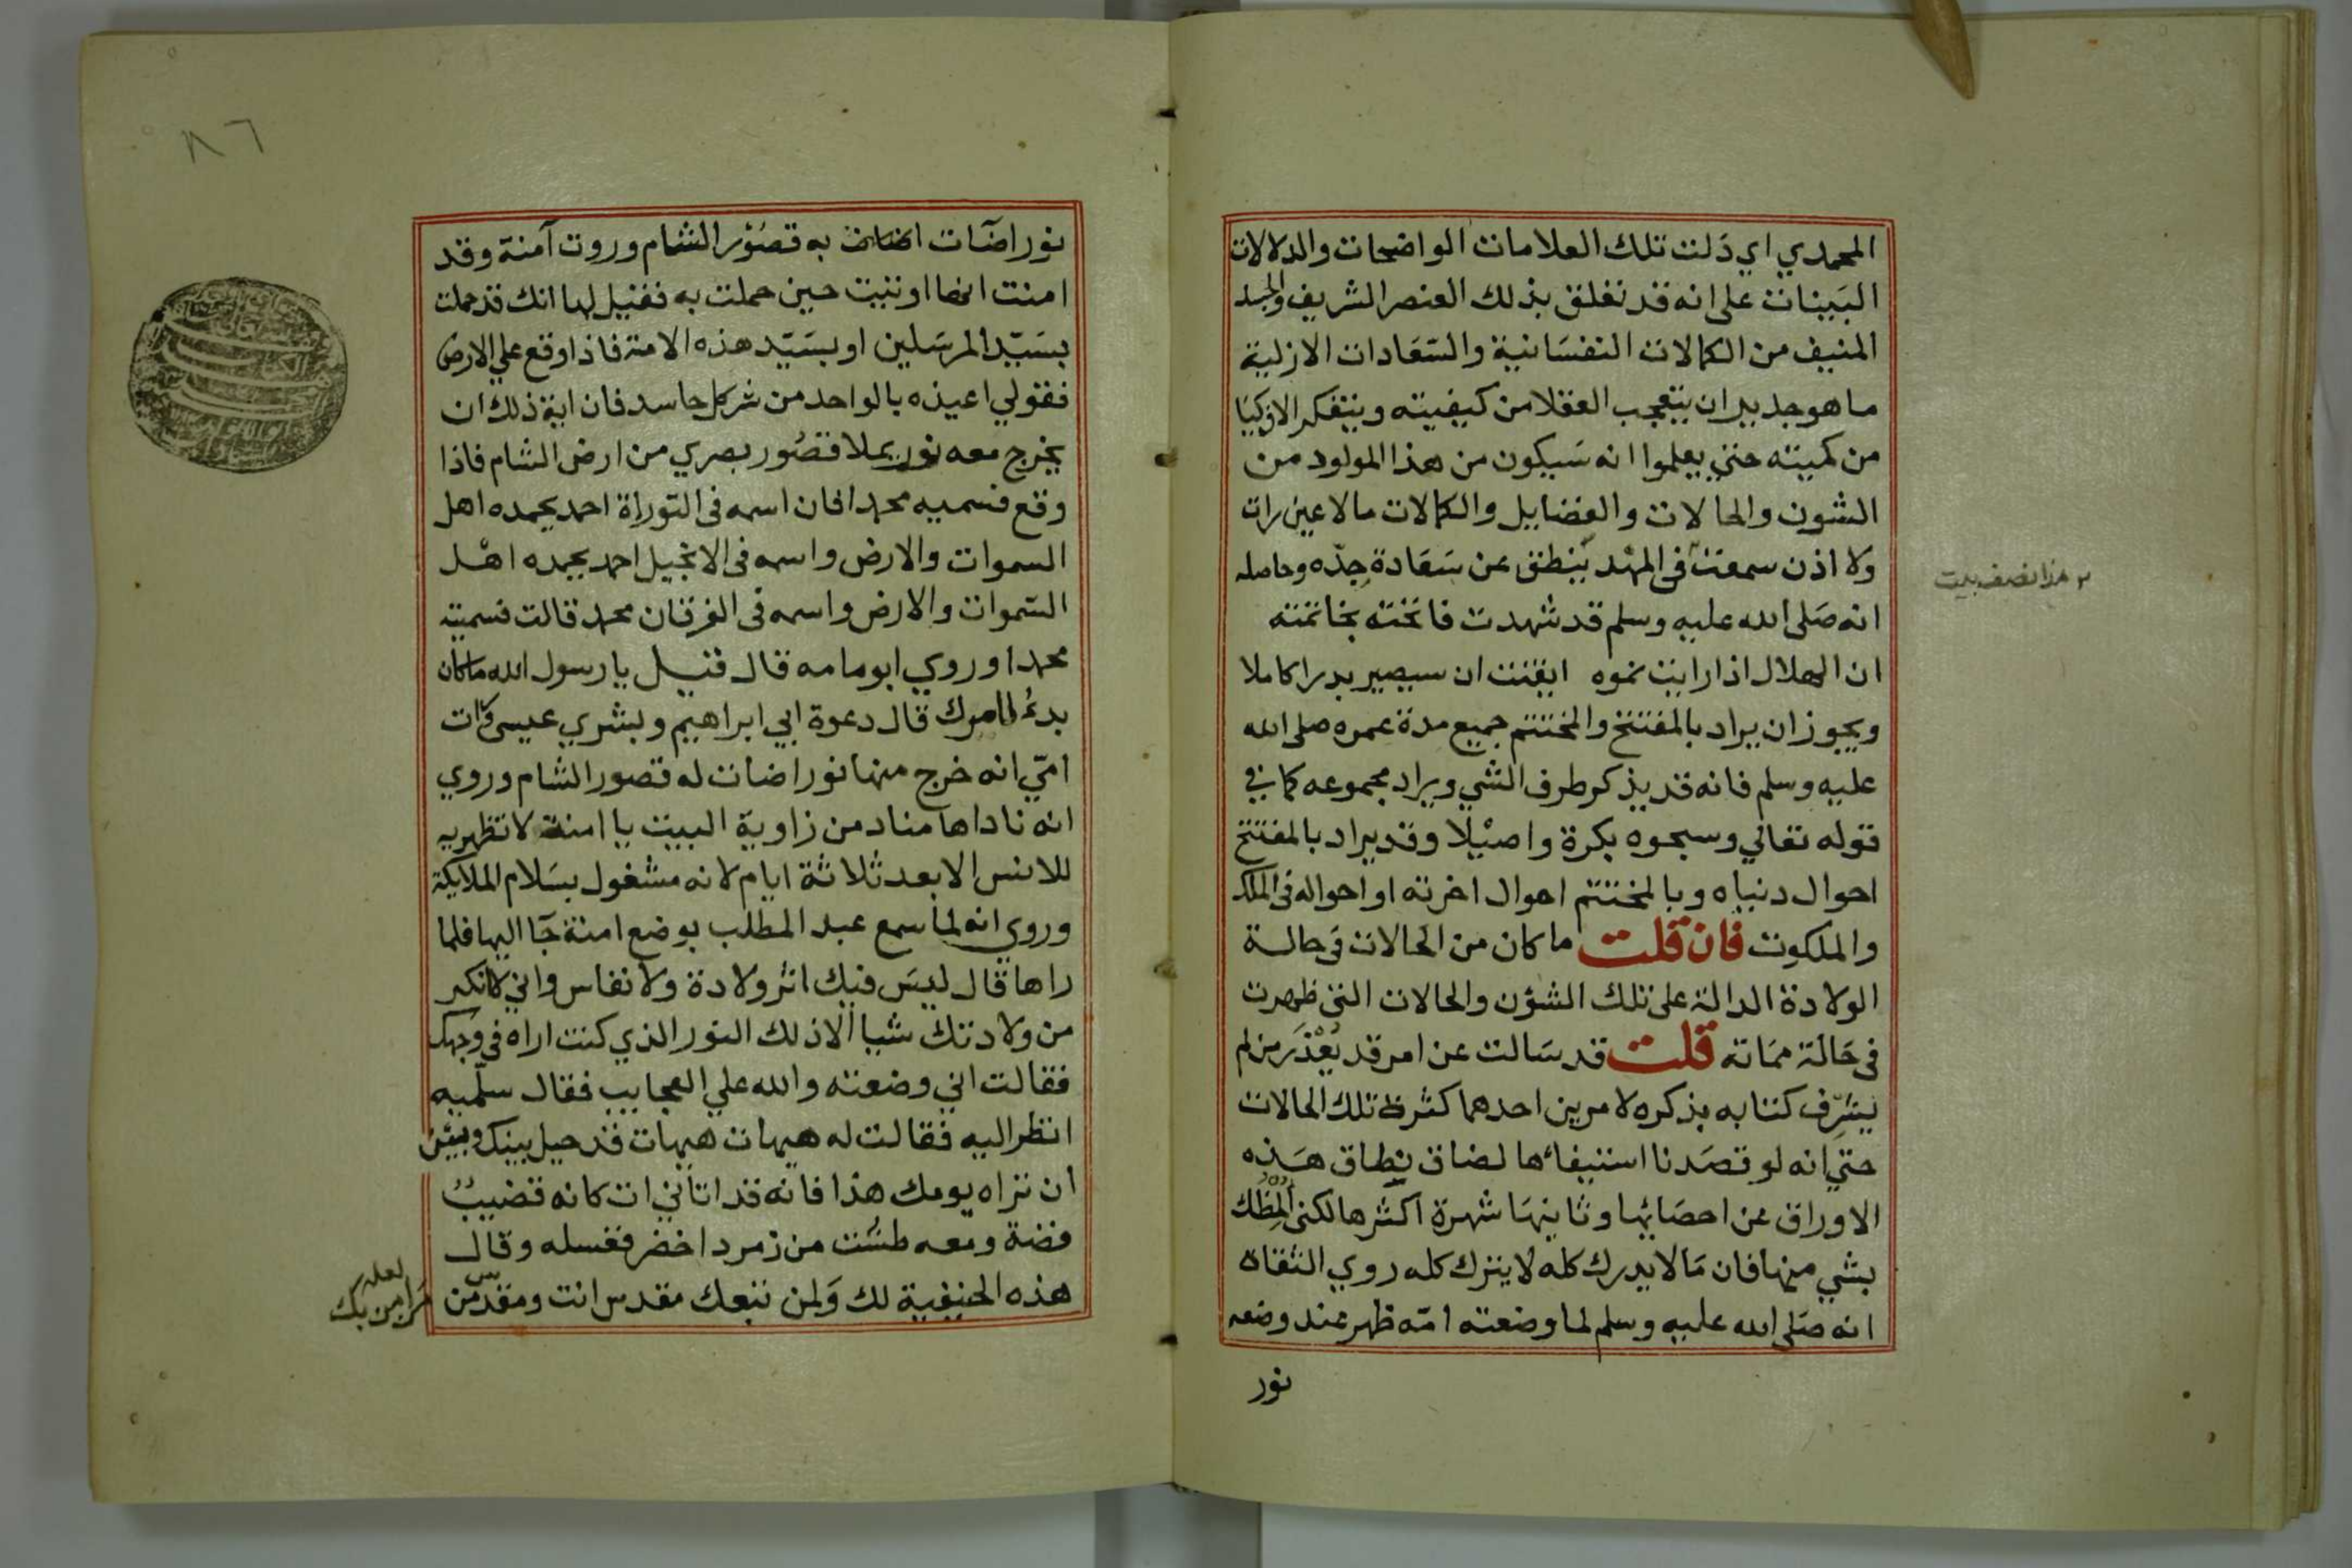 المحمدي اي دَلت تلك العلامات الواضحات والدلالات
البَينات على انه قد تعلق بذلك العنصر الشريف والجسد
المنيف من الكمالات النفسَانية والسّعَادات الازلية
ما هو جدير ان يتعجب العقلا من كيفيته ويتفكر الاذكيَا
من كميته حتي يعلموا انه سَيكون من هذا المولود من
الشون والحالات والفضايل والكمالات ما لا عين رات
ولا اذن سمعت في المهْد يَنطق عن سَعَادة جدّه وحاصله
٢ هذا نصف بيت
انه صَلى الله عليه وسلم قد شهدت فاتحته بخاتمته
ان الهلال اذا رايت نموه ايقنت ان سيصير بدرا كاملا
ويجوز ان يراد بالمفتتح والمختتم جميع مدة عمره صلى الله
عليه وسلم فانه قد يذكر طرف الشي ويراد مجموعه كما في
قوله تعالي وسبحوه بكرة واصيْلا وقد يراد بالمفتتح
احوال دنياه وبالمختتم احوال اخرته او احواله في الملك
والملكوت فان قلت ما كان من الحالات في حالة
الولادة الدالة على تلك الشؤن والحالات التي ظهرت
في حَالَة ممَاته قلت قد سَالت عن امر قد يُعْذَر من لم
يشرّف كتابه بذكره لامرين احدهما كثرة تلك الحالات
حتي انه لو قصَدنا استيفاءها لضاق نِطاق هَذه
الاوراق عن احصَائها وثانيهَا شهرة اكثرها لكني
بشي منها فان مَا لا يدرك كله لا يترك كله روي الثقاة
انه صَلى الله عليه وسلم لما وضعته امّه ظهر عند وضعه
نور
٨٦
نور اضآت به قصُوْر الشام وروت آمنة وقد
امنت انها اوتيت حين حملت به فقيل لها انك قد حملت
بسَيّد المرسَلين او بسَيّد هذه الامة فاذا وقع علي الارض
فقولي اعيذه بالواحد من شر كل حاسد فان اية ذلك ان
يخرج معه نور يملا قصُور بصري من ارض الشام فاذا
وقع فسميه محمدا فان اسمه في التوراة احمد يحمده اهل
السموات والارض واسمه في الانجيل احمد يحمده اهْل
السّموات والارض واسمه في الفرقان محمد قالت فسميته
محمدا وروي ابو مامه قال قيل يا رسول الله ما كان
بدءُ امرك قال دعوة ابي ابراهيم وبشري عيسى ورات
امّي انه خرج منها نور اضات له قصور الشام وروي
انه ناداها مناد من زاوية البيت يا امنة لا تظهريه
للانس الا بعد ثلاثة ايام لانه مشغول بسَلام الملايكة
وروي انه لما سمع عبد المطلب بوضع امنة جَا اليها فلما
راها قال ليسَ فيك اثر ولادة ولا نفاس واني لا انكر
من ولادتك شيا الا ذلك النور الذي كنت اراه في وجهك
فقالت اني وضعته والله علي العجايب فقال سلّميه
انظر اليه فقالت له هيهات هيهات قد حيل بينك وبين
أن تراه يومك هذا فانه قد اتاني ات كانه قضيبُ
فضة ومعه طسْت من زمرد اخضر فغسله وقال
هذه الحنيفية لك وَلمن تبعك مقدس انت ومقدّس من
لعله